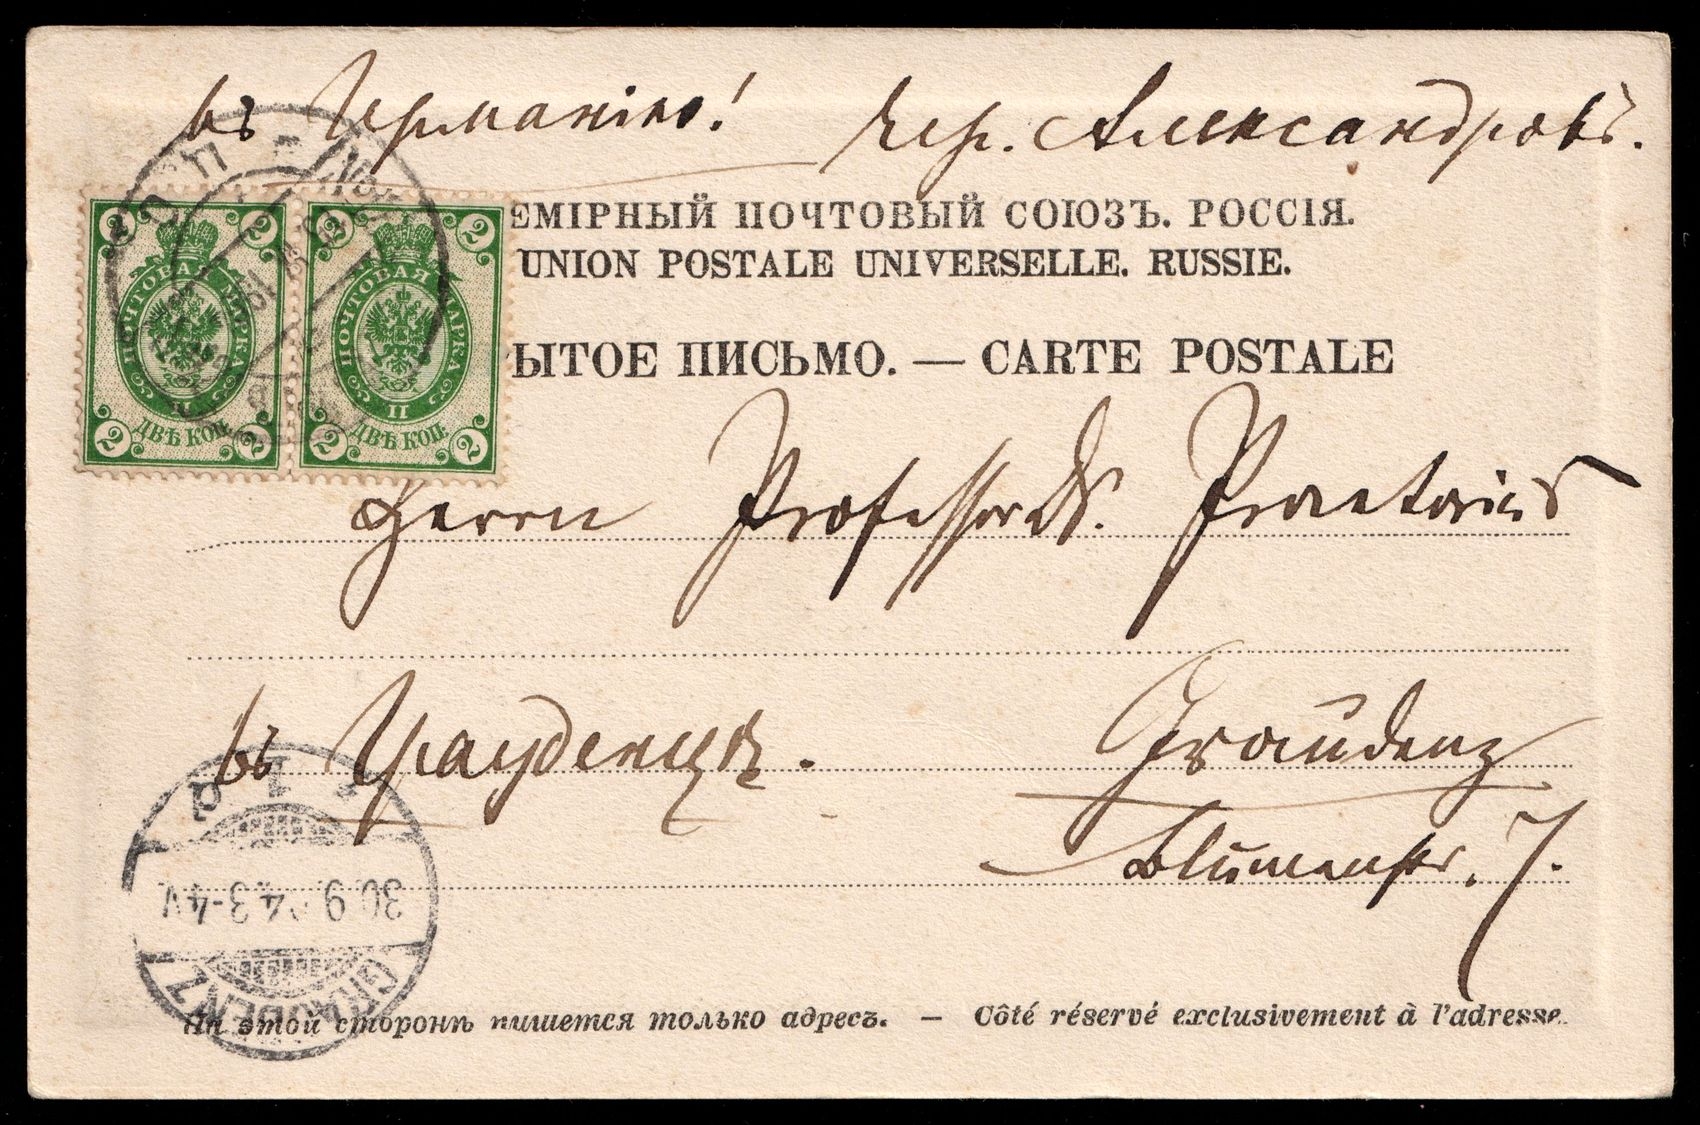 въ Германію! чер. Александровъ.
ЕМІРНЫЙ ПОЧТОВЫЙ СОЮЗЪ. РОССІЯ.
UNION POSTALE UNIVERSELLE. RUSSIE.
ЫТОЕ ПИСЬМО. — CARTE POSTALE
2 2 2 2
ПОЧТОВАЯ МАРКА ПОЧТОВАЯ МАРКА
II II
ДВѢ КОП. ДВѢ КОП.
2 2 2 2
Herrn Professor Dr. Praetorius
въ Грауденцъ. Graudenz
Blumenstr. 7.
30.9.04.3-4V
GRAUDENZ
На этой сторонѣ пишется только адресъ. — Côté réservé exclusivement à l'adresse.